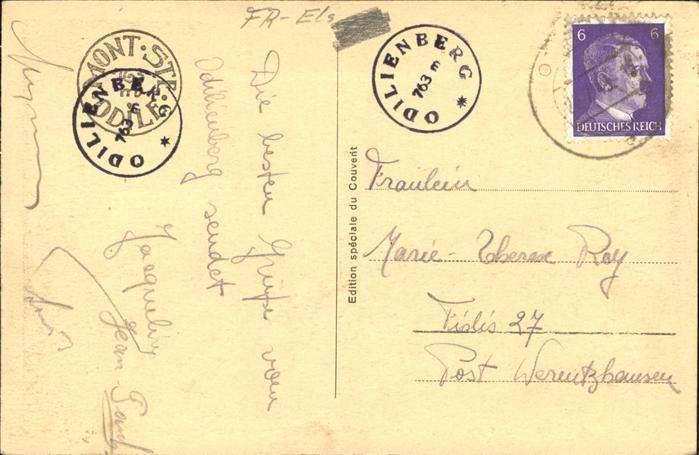 FR-Els
MONT·STE
ODILE
ODILIENBERG
763 m
ODILIENBERG
763 m
6 6
DEUTSCHES REICH
Die besten Grüße vom
Odilienberg sendet
Jacqueline
Jean Paul
Edition spéciale du Couvent
Fräulein
Marie-Therese Rey
Fislis 27
Post Werentzhausen